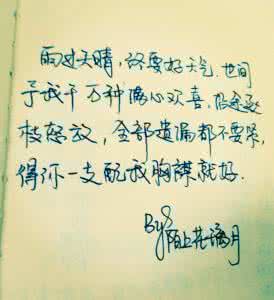 雨过天晴，终要好天气．世间
予我千万种满心欢喜．沿途逐
枝怒放，全部遗漏都不要紧，
得你一支配我胸襟就好．
By 陌上花满月